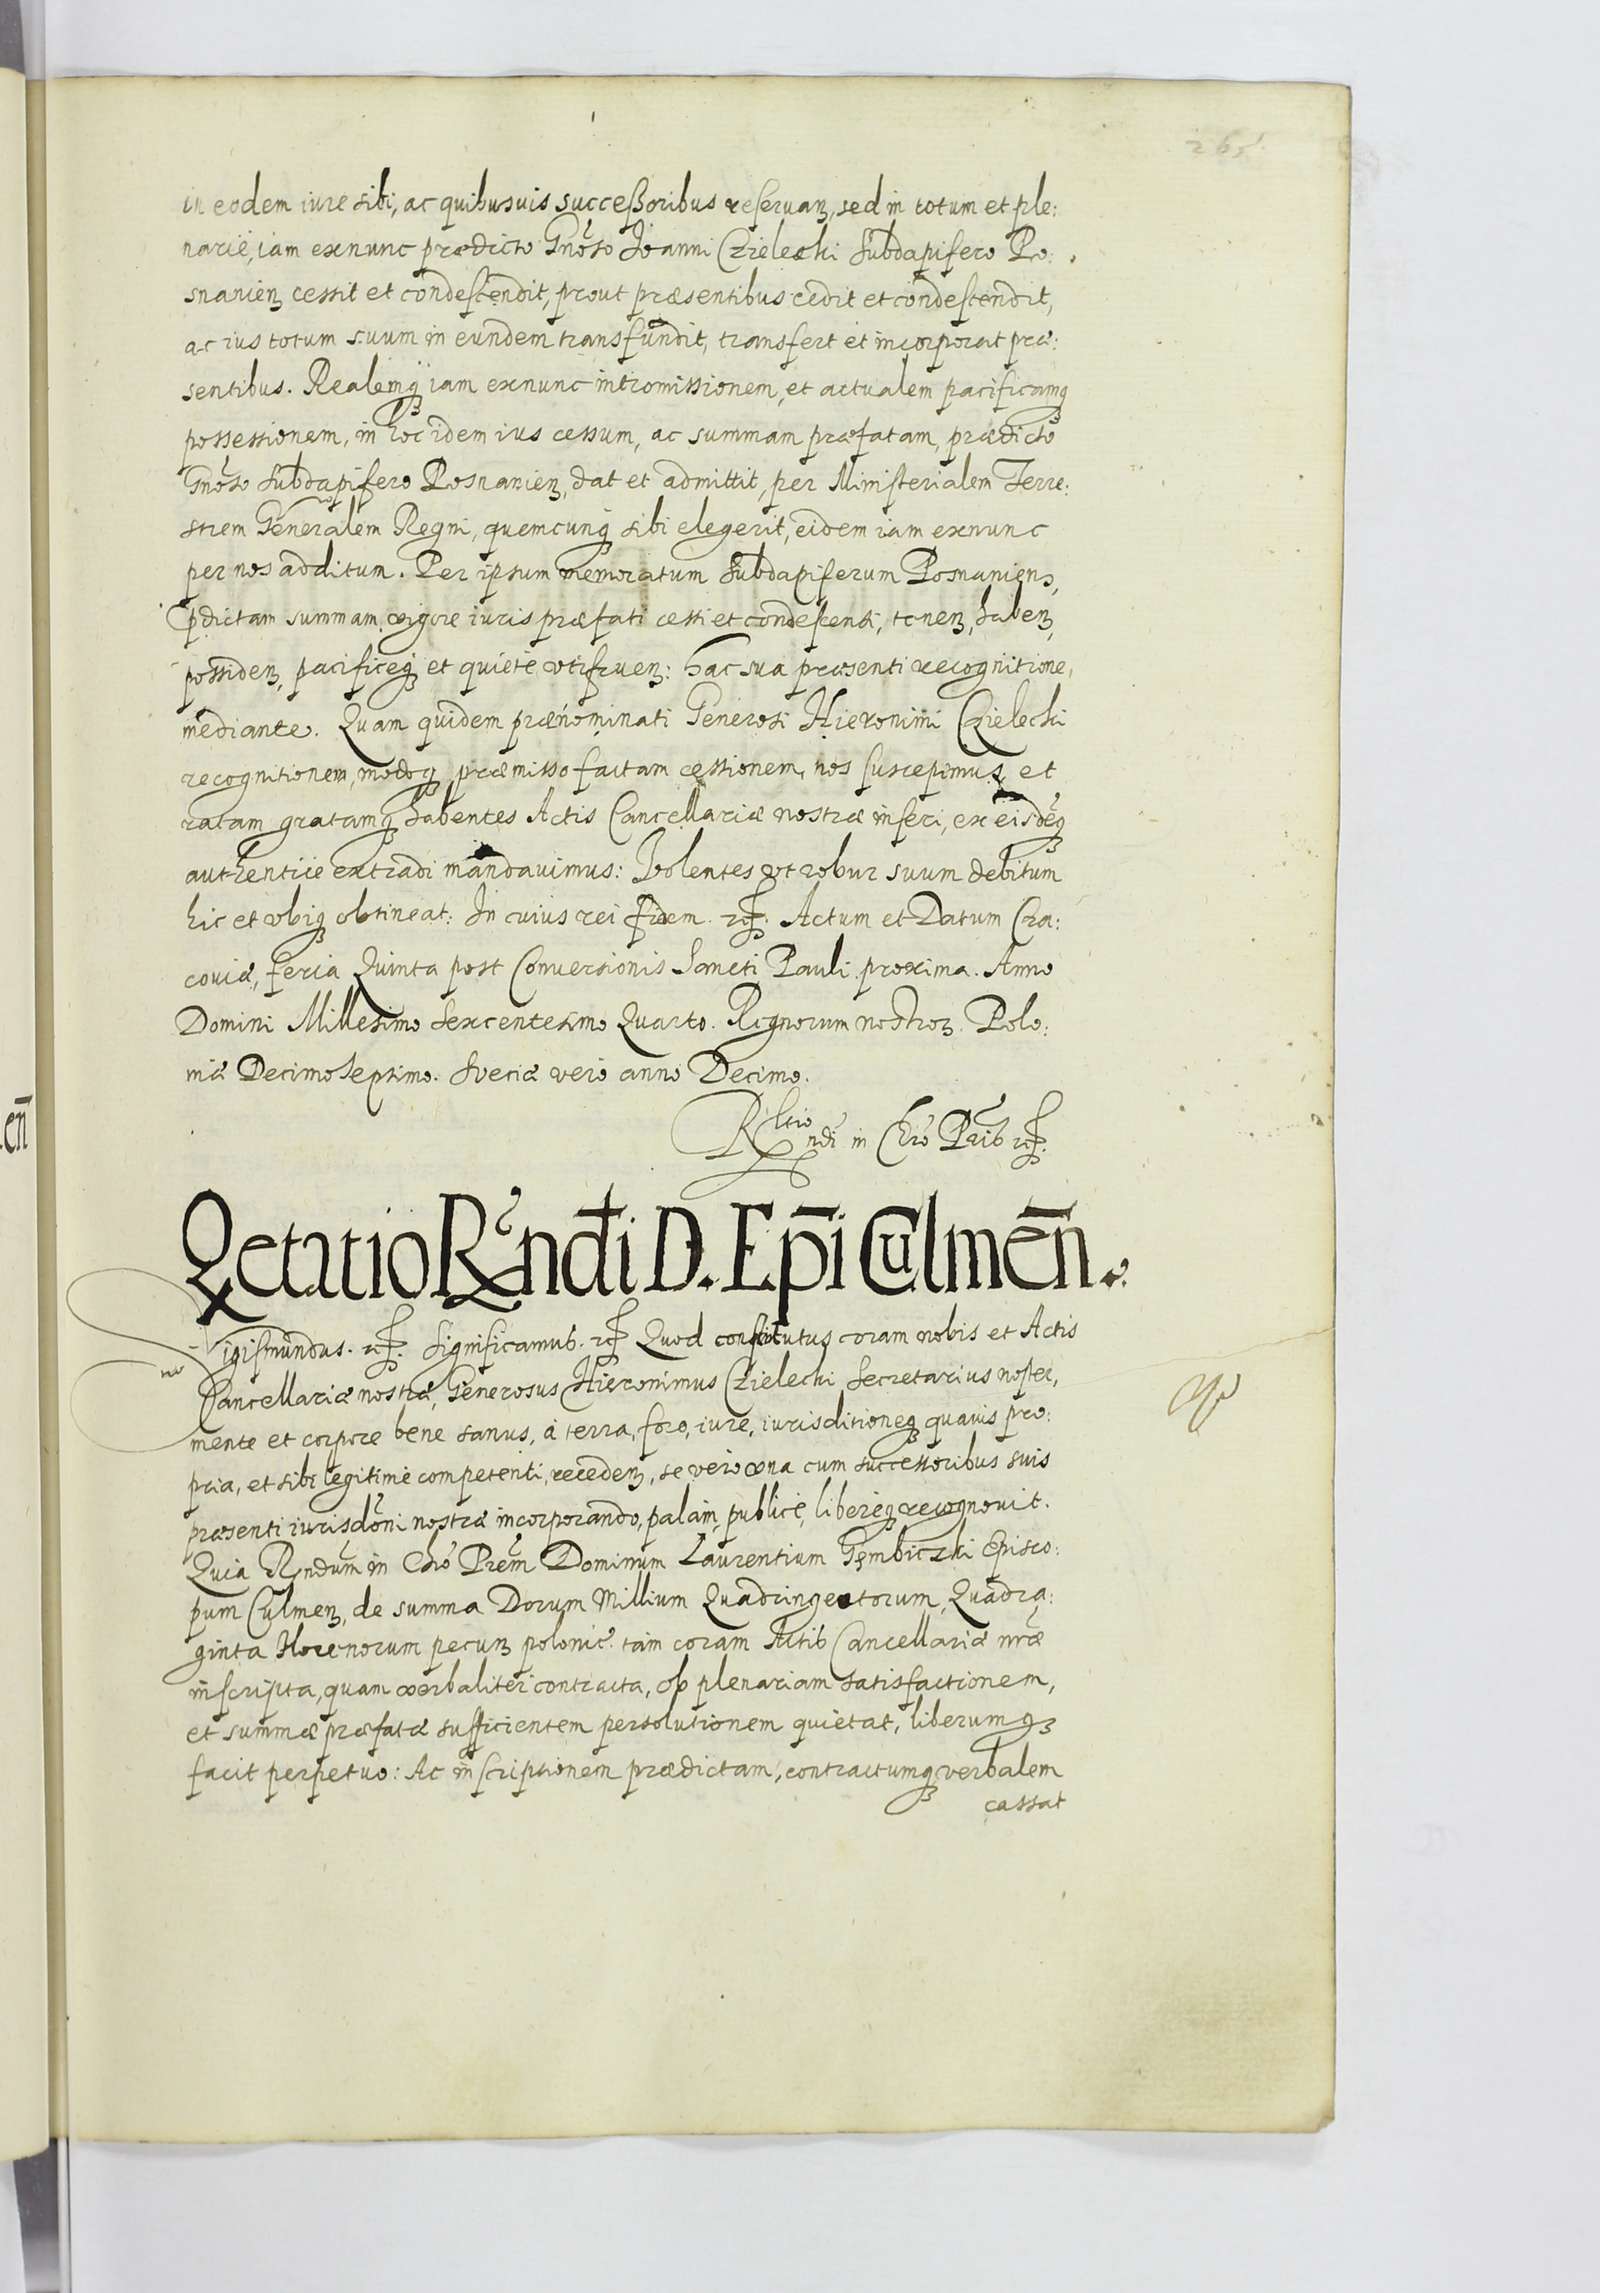 265
in eodem iure sibi, ac quibusuis successoribus reseruan̄, sed in totum et ple:
nariè, iam exnunc prædicto Gn̄oso Ioanni Czielecki Subdapifero Po:
snanien̄ cessit et condescendit, prout præsentibus cedit et condescendit,
ac ius totum suum in eundem transfundit, transfert et incorporat præ:
sentibus. Realemq̃ iam exnunc intromissionem, et actualem pacificamq̃
possessionem, in hoc idem ius cessum, ac summam præfatam, prædicto
Gn̄oso Subdapifero Posnanien̄, dat et admittit, per Ministerialem Terre:
strem Generalem Regni, quemcunq̃ sibi elegerit, eidem iam exnunc
per nos additum. Per ipsum memoratum Subdapiferum Posnaniens,
p̱dictam summam vigore iuris præfati cessi et condescensi, tenen̄, haben̄,
possiden̄, pacificeq̃ et quiete vtifruen̄: hac sua præsenti recognitione,
mediante. Quam quidem prænominati Generosi Hieronimi Czielecki
recognitionem, modoq̃ præmisso factam cessionem, nos suscepimus, et
ratam gratamq̃ habentes Actis Cancellariæ nostræ inseri, ex eisdēq̃
authentice extradi mandauimus: Volentes vt robur suum debitum
hic et vbiq̃ obtineat: In cuius rei fidem. rc̄. Actum et Datum Cra:
couiæ, feria Quinta post Conuersionis Sancti Pauli proxima. Anno
Domini Millesimo Sexcentesimo Quarto. Regnorum nostroȝ. Polo:
niæ Decimo Septimo. Sueciæ vero anno Decimo.
Rltio
ndi in Chr̄o Prīs rc̄.
Qetatio Rn̄di D. Epī Culmen̄.
Sigismundus. rc̄. Significamus. rc̄ Quod constitutus coram nobis et Actis
Cancellariæ nostræ, Generosus Hieronimus Czielecki Secretarius noster,
mente et corpore bene sanus, à terra, foro, iure, iurisditioneq̃ quauis pro:
pria, et sibi legitimè competenti, receden̄, se vero vna cum successoribus suis
præsenti iurisdōni nostræ incorporando, palam, publicè, libereq̃ recognouit.
Quia Rn̄dum in Chr̄o Prēm Dominum Laurentium Gembiczki Episco:
pum Culmen̄, de summa Dorum Millium Quadringentorum, Quadra:
ginta florenorum pecun̄ polonic̄ tam coram Actis Cancellariæ nr̄æ
inscripta, quam verbaliter contracta, ob plenariam satisfactionem,
et summæ præfatæ sufficientem persolutionem quietat, liberumq̃
facit perpetuo: Ac inscriptionem prædictam, contractumq̃ verbalem
cassat